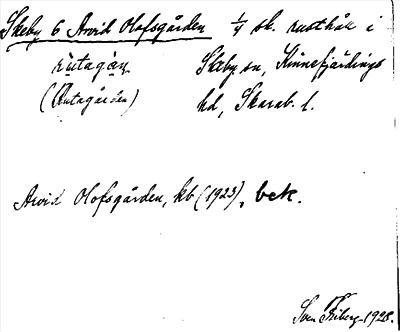 Skeby 6 Arvid Olofsgården 1/4 sk. rusthåll i
rùtagáṇ Skeby sn, Kinnefjärdings
(Rutagården) hd, Skarab. l.
Arvid Olofsgården, kb (1923), bek.
Sven Friberg 1928.